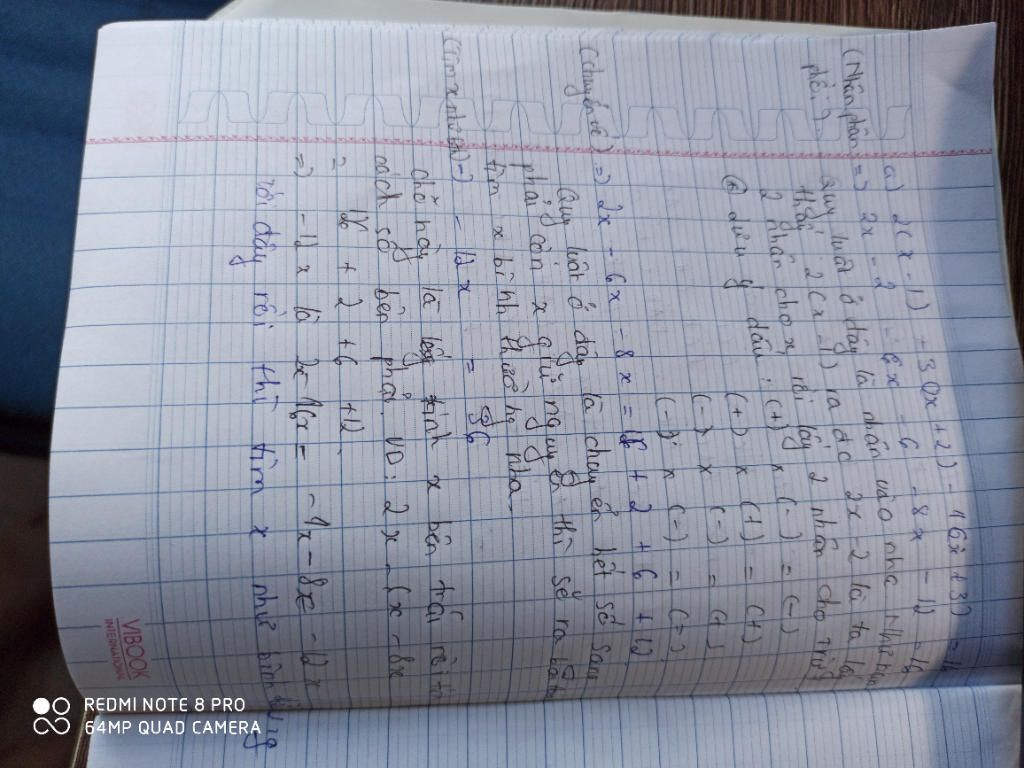 a) 2(x - 1) - 3(2x + 2) - 4(2x + 3) = 16
(Nhân phân phối) => 2x - 2 - 6x - 6 - 8x - 12 = 16
Quy luật ở đây là nhân vào nha như
thấy 2(x - 1) ra đc 2x - 2 là ta lấy
2 nhân cho x rồi lấy 2 nhân cho
Lưu ý dấu: (+) x (-) = (-)
(+) x (+) = (+)
(-) x (-) = (+)
(-) x (-) = (-)
(Chuyển vế) => 2x - 6x - 8x = 16 + 2 + 6 + 12
Quy luật ở đây là chuyển hết số sang
phải còn x giữ nguyên thì sẽ ra
tìm x bình thường nha.
=> - 12x = 36
chỗ này là lấy tính x bên trái rồi
cách số bên phải. VD: 2x - 6x - 8x
= 16 + 2 + 6 + 12
=> - 12x là 2x - 6x = - 4x - 8x = - 12x
tới đây rồi thì tìm x như bình thường
VIBOOK
INTERNATIONAL
REDMI NOTE 8 PRO
64MP QUAD CAMERA